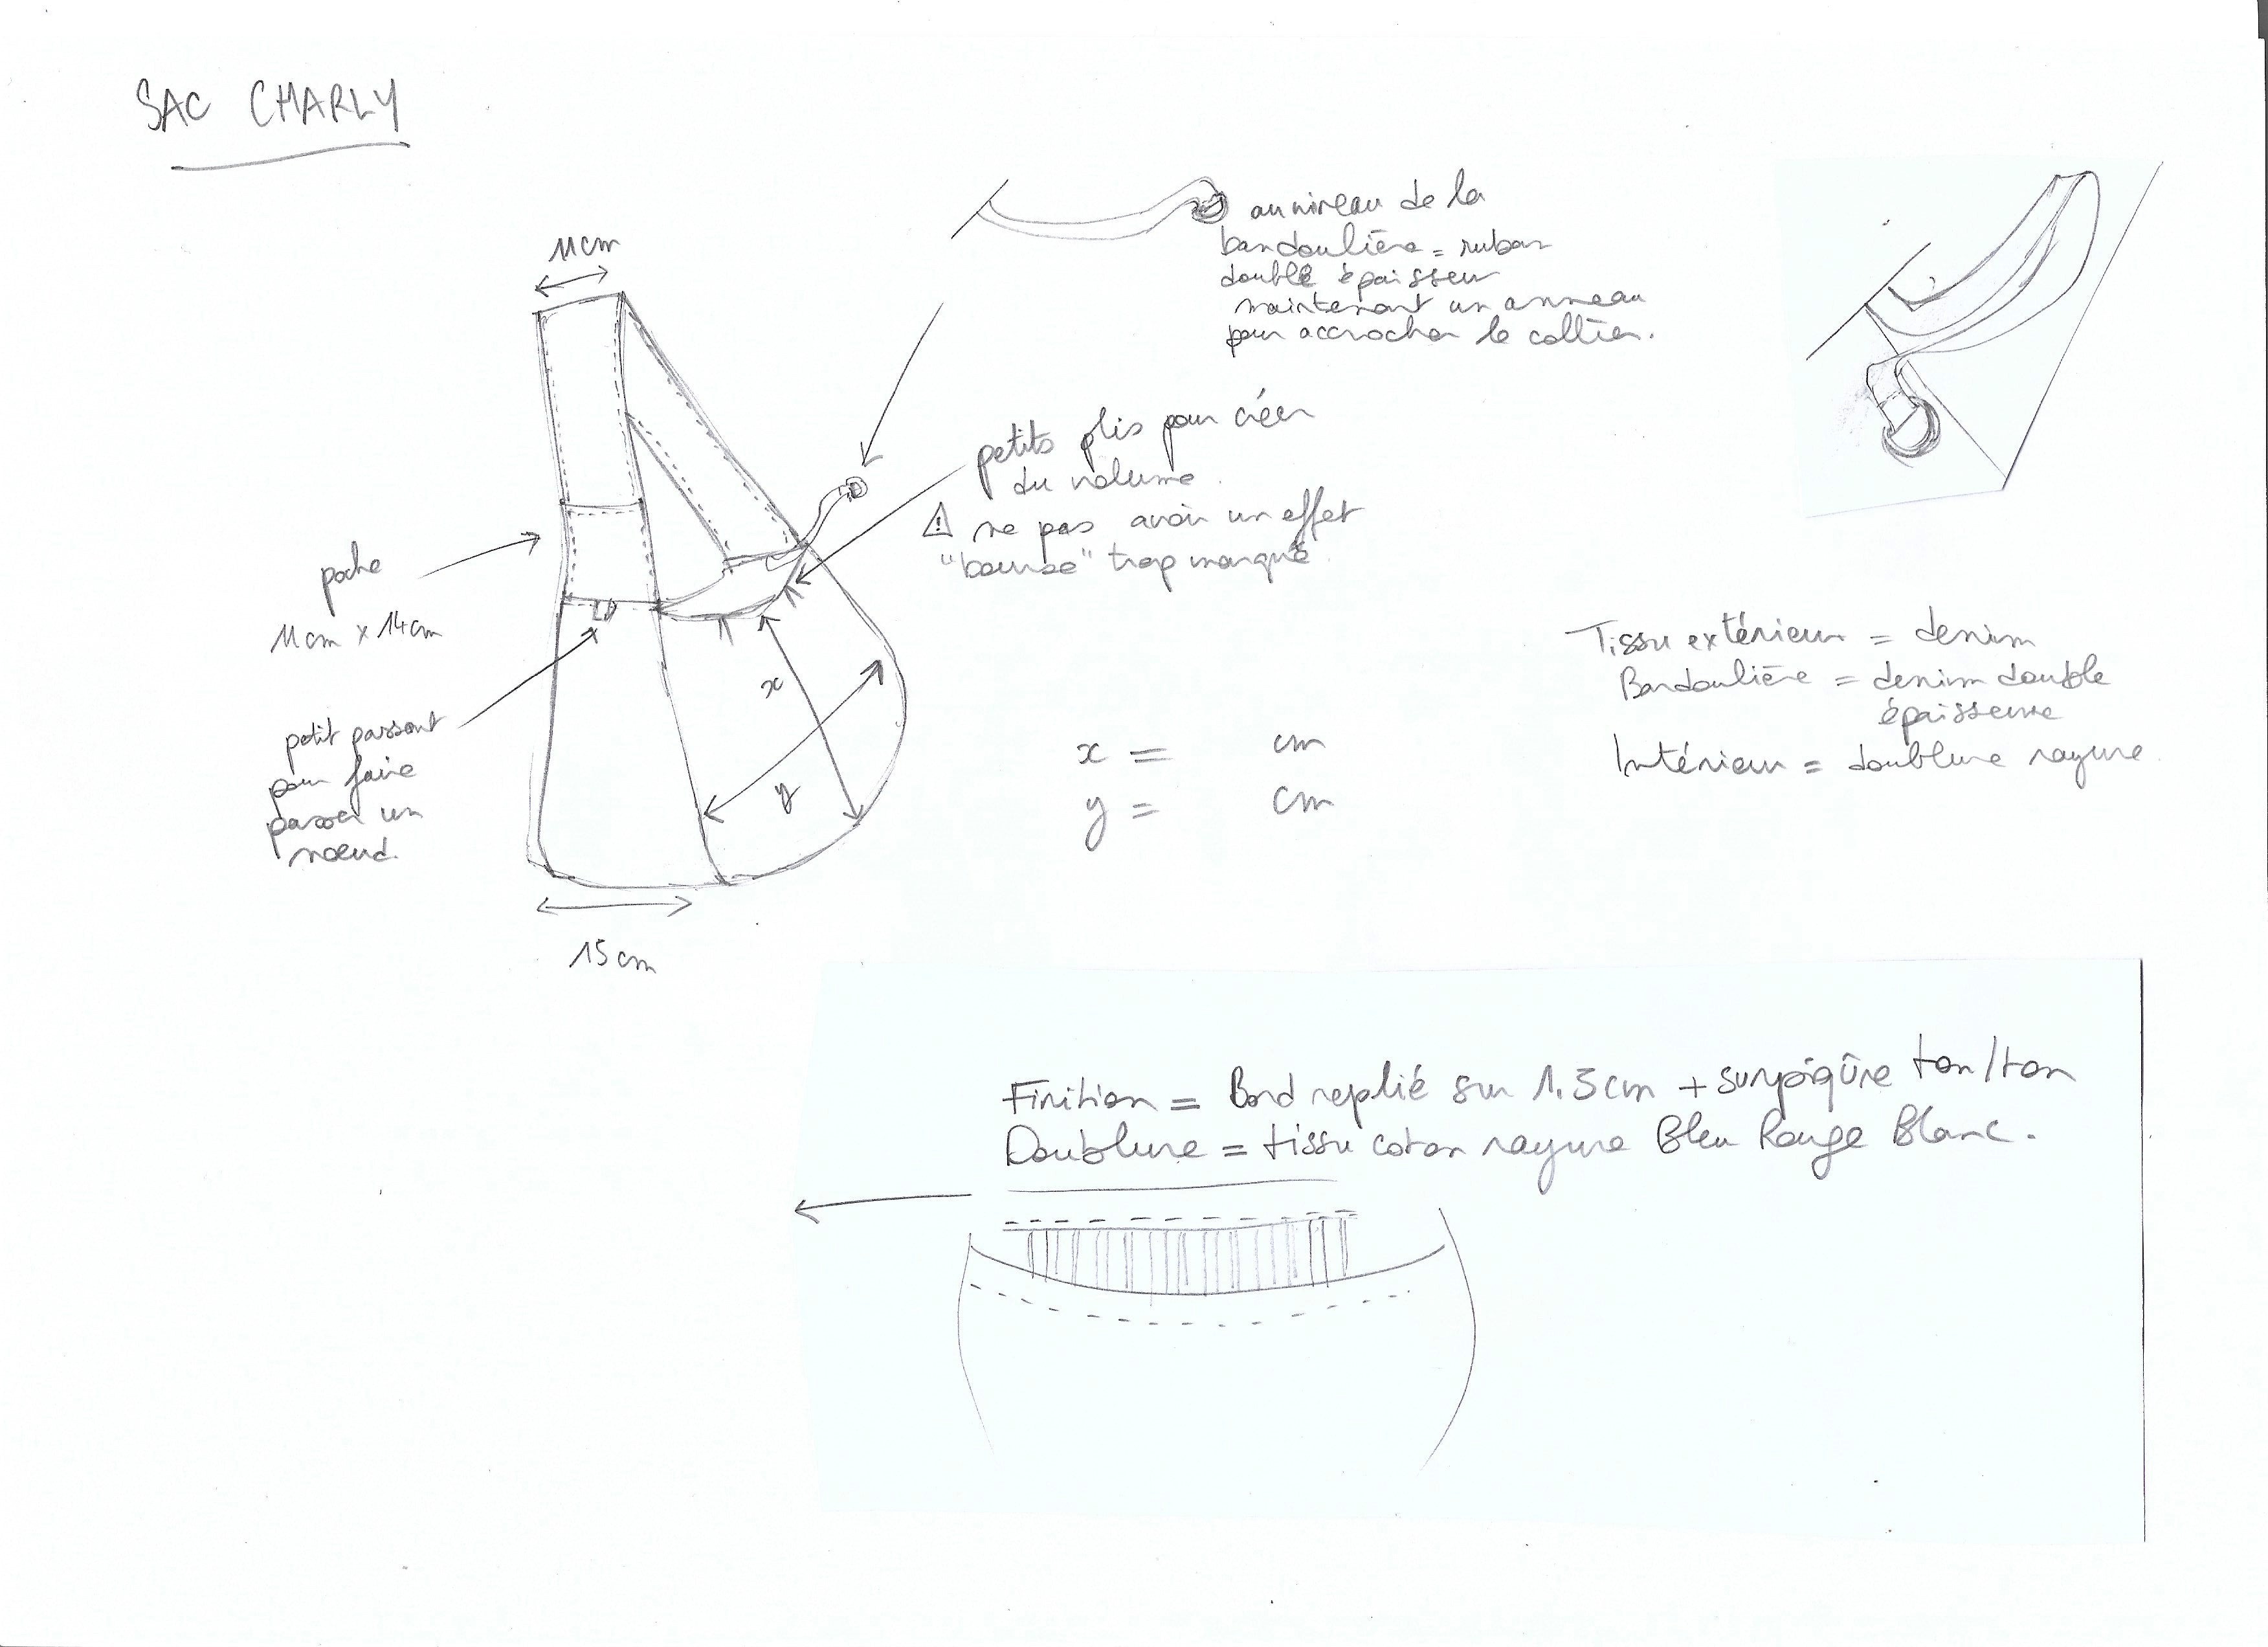 SAC CHARLY
11cm
au niveau de la
bandoulière = ruban
double épaisseur
maintenant un anneau
pour accrocher le collier.
petits plis pour créer
du volume.
⚠ ne pas avoir un effet
"bourse" trop marqué.
poche
11cm x 14cm
petit passant
pour faire
passer un
noeud.
x
y
15cm
x = cm
y = cm
Tissu extérieur = denim
Bandoulière = denim double
épaisseur
Intérieur = doublure rayure
Finition = Bord replié sur 1.5cm + surpiqûre ton/ton
Doublure = tissu coton rayure Bleu Rouge Blanc.